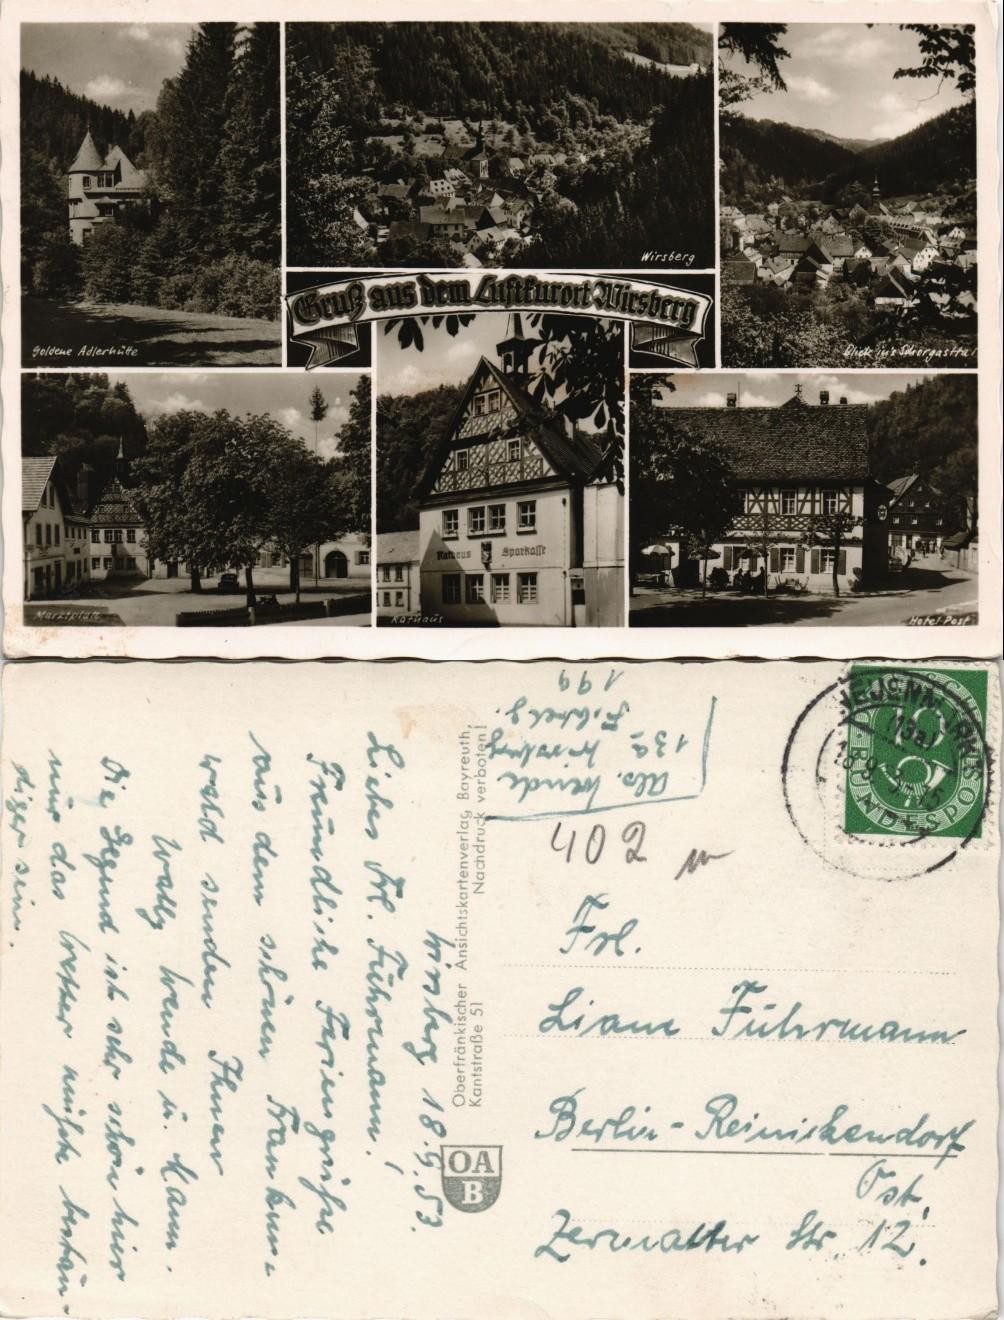 Goldene Adlerhütte
Wirsberg
Blick in's Schorgasttal
Gruß aus dem Luftkurort Wirsberg
Marktplatz
Rathaus Sparkasse
Rathaus
Hotel Post
Wirsberg 18.9.53.
Liebes Frl. Führmann!
Freundliche Feriengrüße
aus dem schönen Franken-
wald senden Ihnen
Wally Wende u. Mann.
Die Gegend ist sehr schön hier
nur das Wetter müßte bestän-
diger sein.
Abs. Wende
13a Wirsberg
199
Oberfränkischer Ansichtskartenverlag, Bayreuth,
Kantstraße 51 Nachdruck verboten!
OA
B
402
DEUTSCHE BUNDESPOST
10
NEUENMARKT
18.9.53
Frl.
Liane Führmann
Berlin-Reinickendorf
Ost,
Zermatter Str. 12.